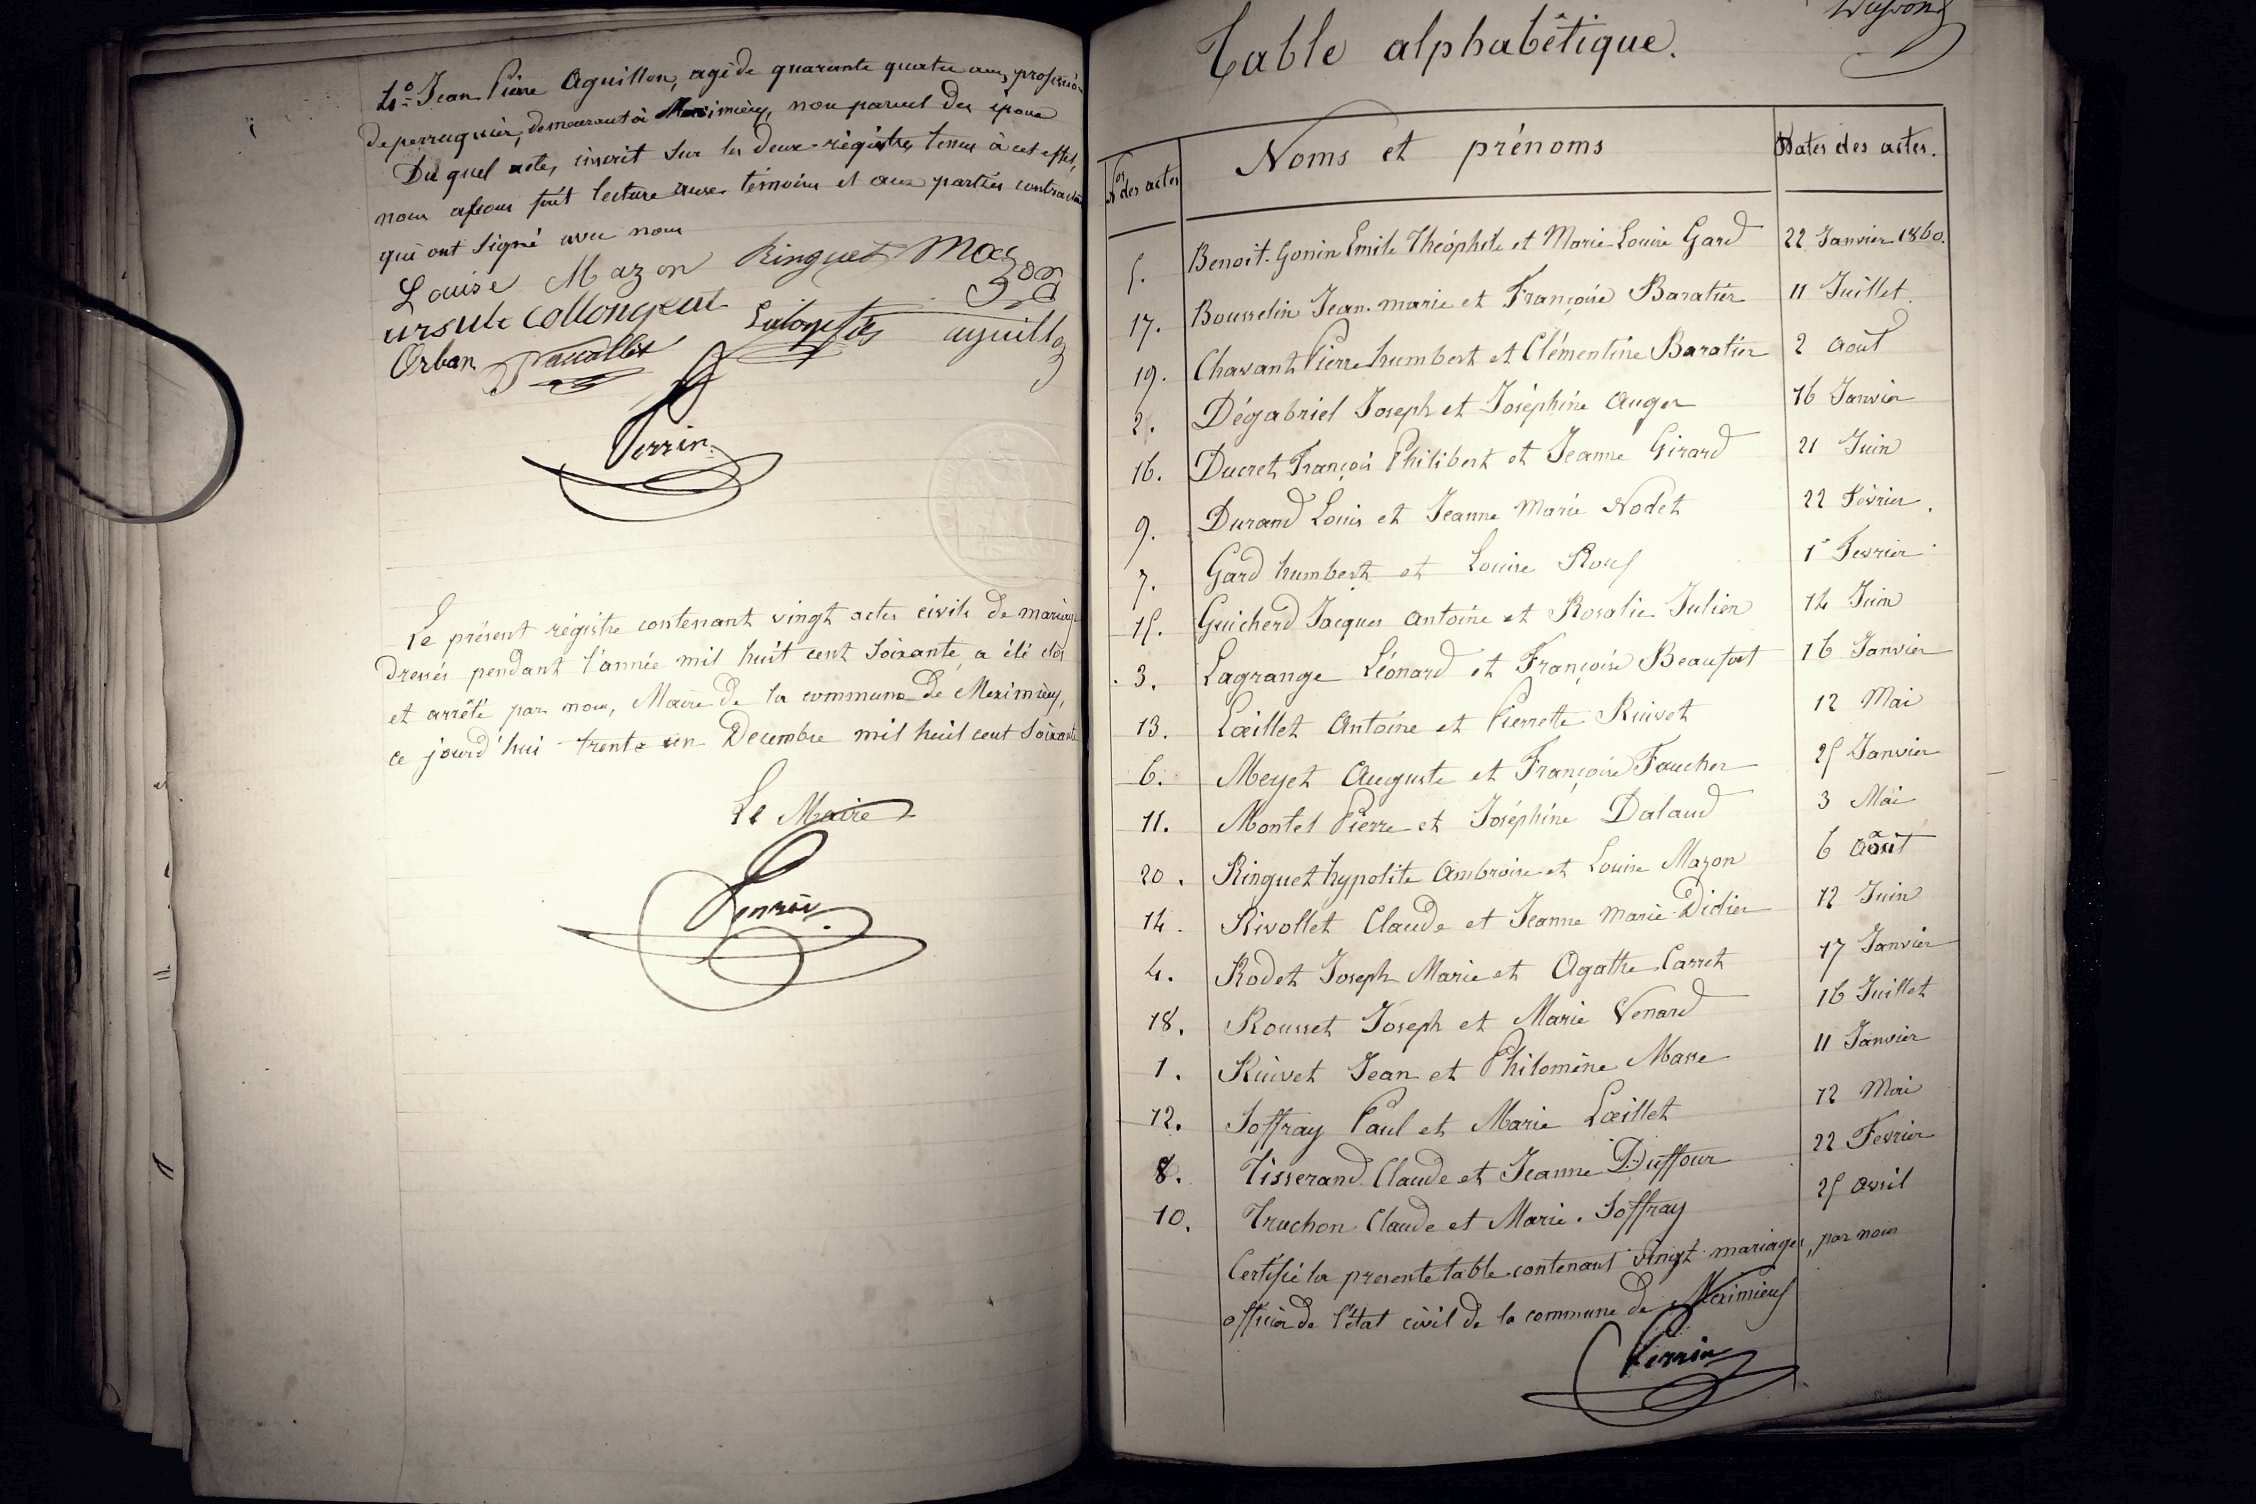 4° Jean Pierre Aguillon, agé de quarante quatre ans, profession
de perruquier, demeurant à Meximieux, non parent des époux
Du quel acte, inscrit sur les deux régistres tenus à cet effet,
nous avons fait lecture aux témoins et aux parties contractantes
qui ont signé avec nous
Louise Mazon Ringuet Mazon
ursule collongeat aguillon
Orban
Perrin
Le présent régistre contenant vingt actes civils de mariage
dressés pendant l'année mil huit cent soixante, a été clos
et arrêté par nous, Maire de la commune de Meximieux,
ce jourd'hui trente un Decembre mil huit cent soixante
Le Maire
Perrin
Table alphabétique.
Nos des actes Noms et prénoms Dates des actes.
5. Benoit-Gonin Emile Théophile et Marie Louise Gard 22 Janvier 1860.
17. Bousselin Jean-marie et Françoise Baratier 11 Juillet.
19. Chavant Pierre humbert et Clémentine Baratier 2 Août
2. Dégabriel Joseph et Joséphine Auger 16 Janvier
16. Ducret François Philibert et Jeanne Girard 21 Juin
9. Durand Louis et Jeanne Marie Nodet 22 Février.
7. Gard humbert et Louise Roux 1er Fevrier
15. Guicherd Jacques Antoine et Rosalie Julien 14 Juin
3. Lagrange Léonard et Françoise Beaufort 16 Janvier
13. Lœillet Antoine et Pierrette Ruivet 12 Mai
6. Meyet Auguste et Françoise Faucher 25 Janvier
11. Montel Pierre et Joséphine Dalaud 3 Mai
20. Ringuet hypolite Ambroise et Louise Mazon 6 Août
14. Rivollet Claude et Jeanne Marie Didier 12 Juin
4. Rodet Joseph Marie et Agathe Carret 17 Janvier
18. Rousset Joseph et Marie Venard 16 Juillet
1. Ruivet Jean et Philomène Masse 11 Janvier
12. Soffray Paul et Marie Lœillet 12 Mai
8. Tisserand Claude et Jeanne Duffour 22 Fevrier
10. Truchon Claude et Marie Soffray 25 avril
Certifié la presente table contenant vingt mariages, par nous
officier de l'état civil de la commune de Meximieux
Perrin